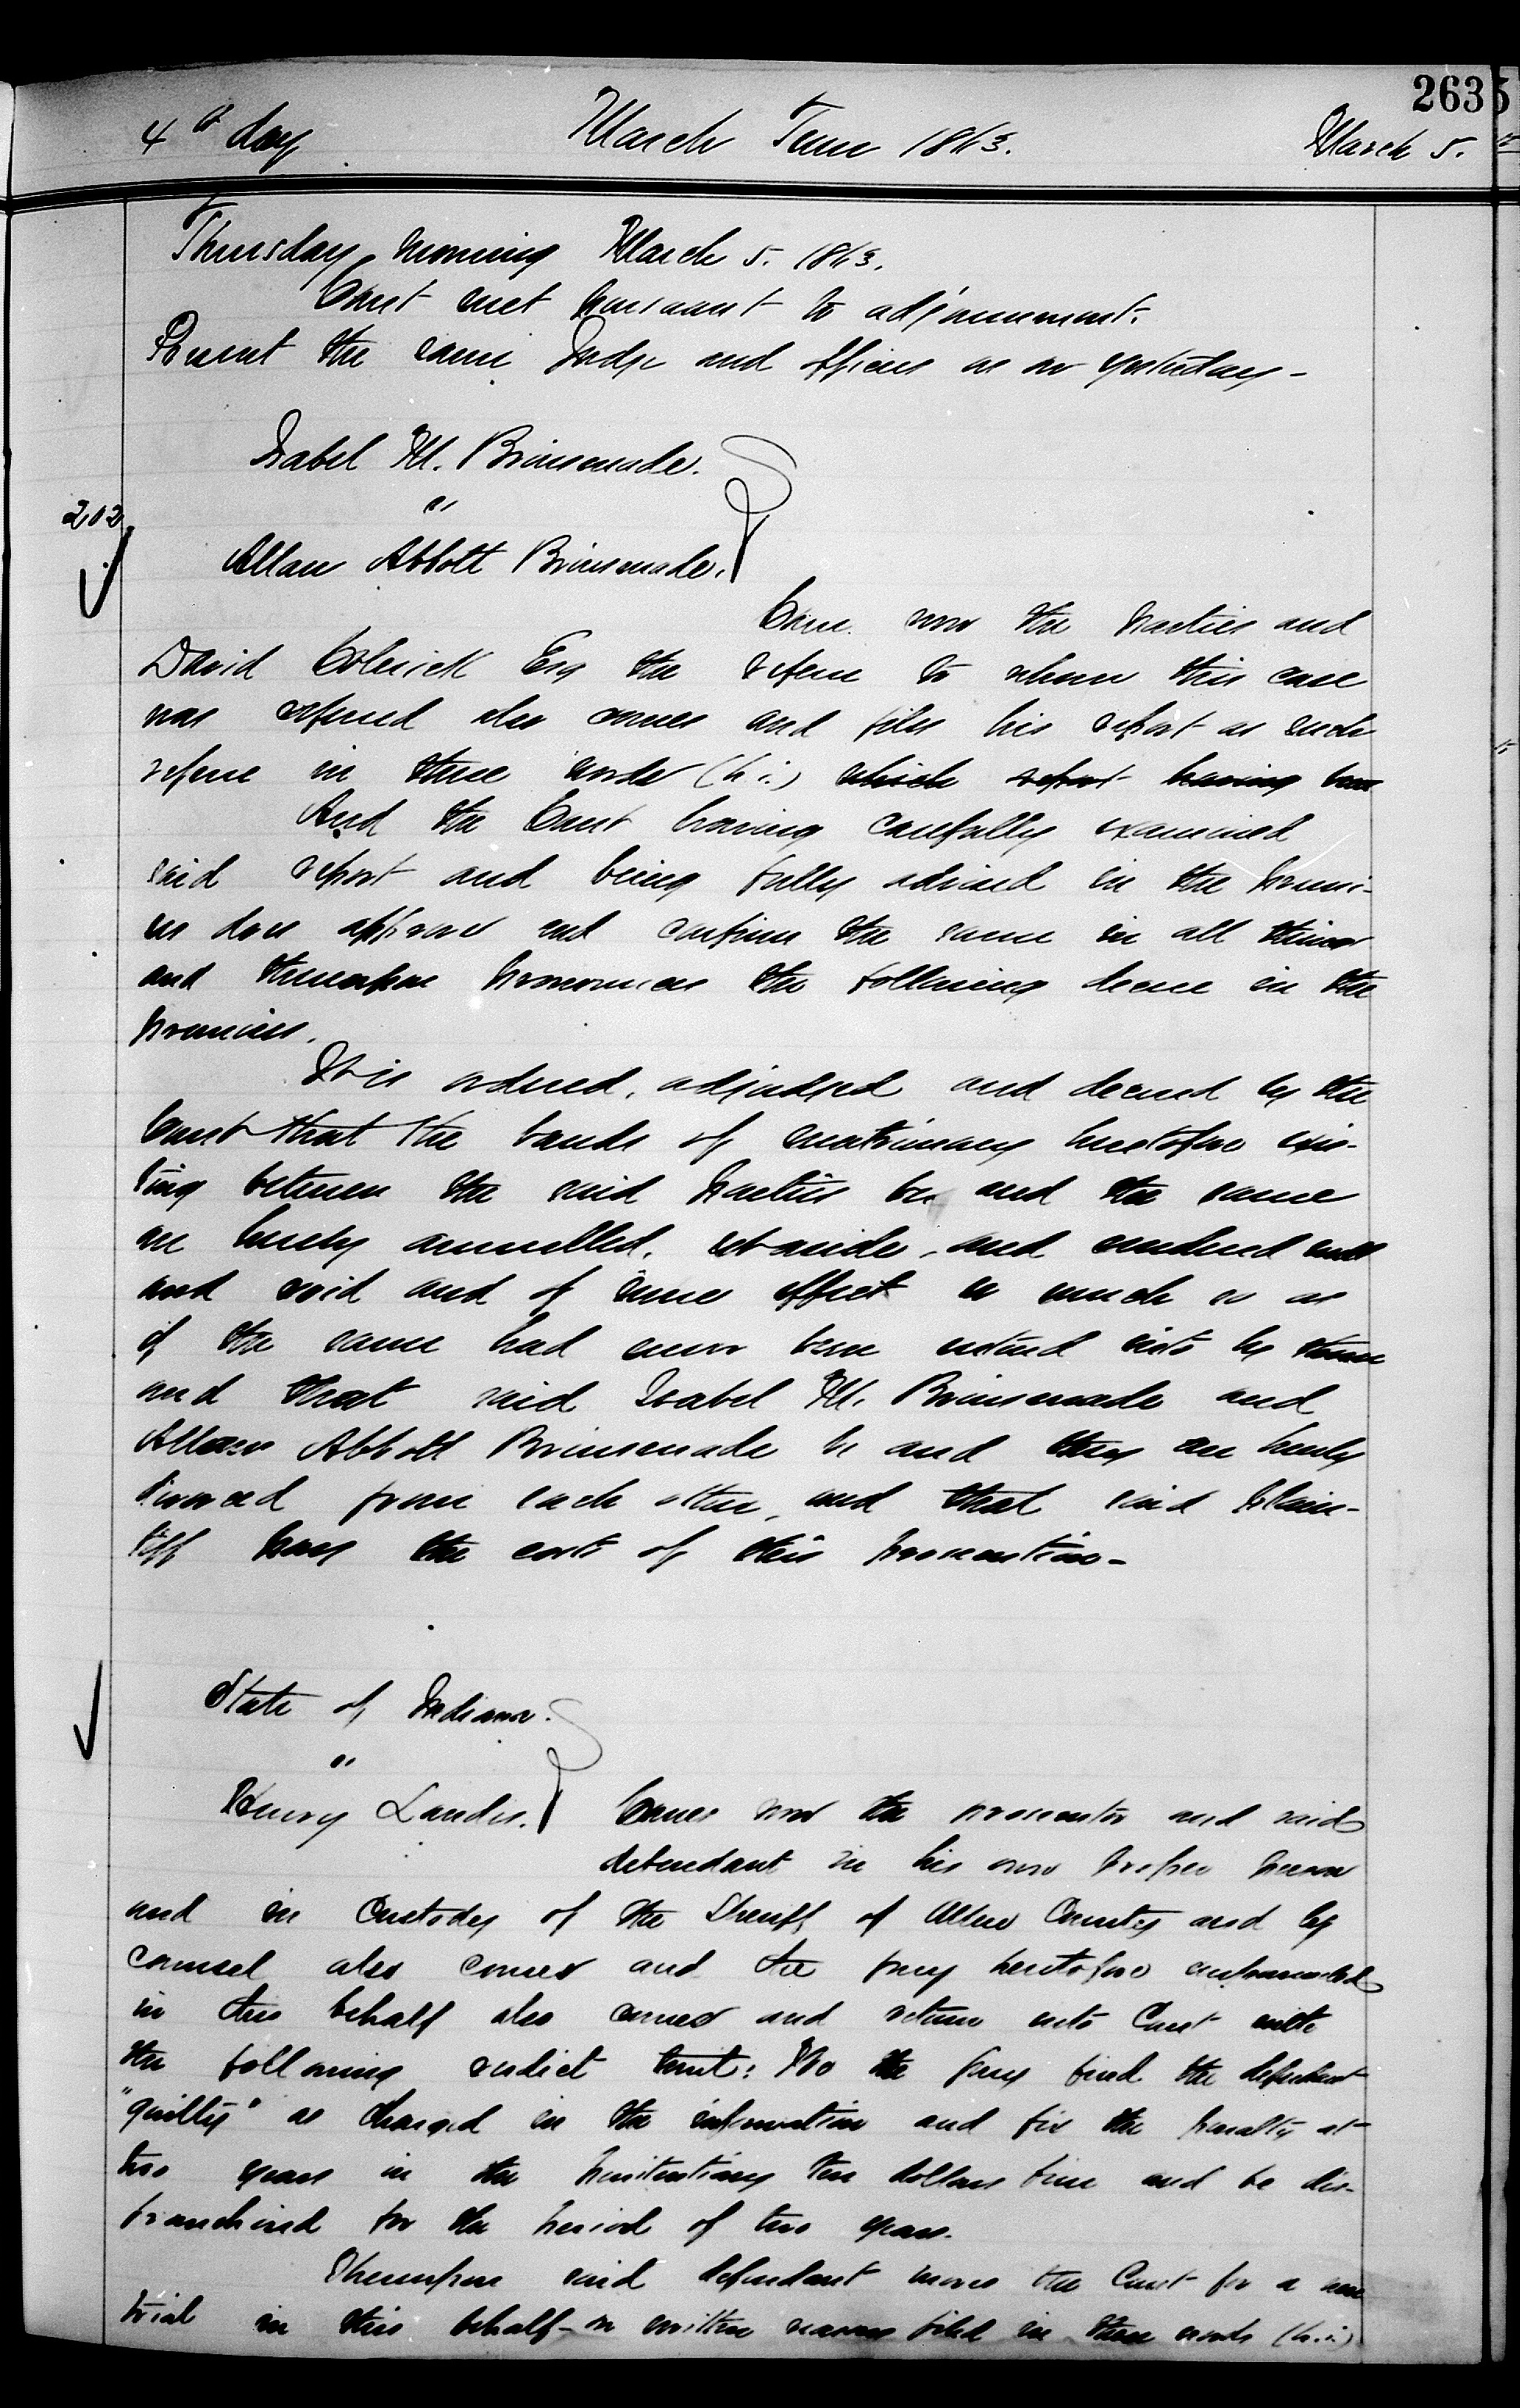 263
4th day March Term 1863. March 5.
Thursday morning March 5. 1863.
Court met pursuant to adjournment.
Present the same Judge and officers as on yesterday -
Isabel M. Brinsmade.
202 vs
Allan Abbott Brinsmade.
Came now the parties and
David Colerick Esq the referee to whom this case
was referred also comes and files his report as such
referee in these words (h.i.) which report having been
And the Court having carefully examined
said report and being fully advised in the premi-
ses does approve and confirm the same in all things
and thereupon pronounces the following decree in the
premises.
It is ordered, adjudged and decreed by the
Court that the bands of matrimony heretofore exis-
ting between the said parties be and the same
are hereby annulled, set aside, and rendered null
and void and of none effect as much so as
if the same had never been entered into by them
and that said Isabel M. Brinsmade and
Allan Abbott Brinsmade be and they are hereby
divorced from each other, and that said plain-
tiff pay the costs of this prosecution -
State of Indiana.
vs
Henry Landis. Comes now the prosecutor and said
defendant in his own proper person
and in custody of the Sheriff of Allen County and by
counsel also comes and the jury heretofore empannelled
in this behalf also comes and return into Court with
the following verdict towit: We the jury find the defendant
"guilty" as charged in the information and fix the penalty at
two years in the penitentiary ten dollars fine and be dis-
franchised for the period of two years.
Thereupon said defendant moves the Court for a new
trial in this behalf - on written reasons filed in these words (h.i.)